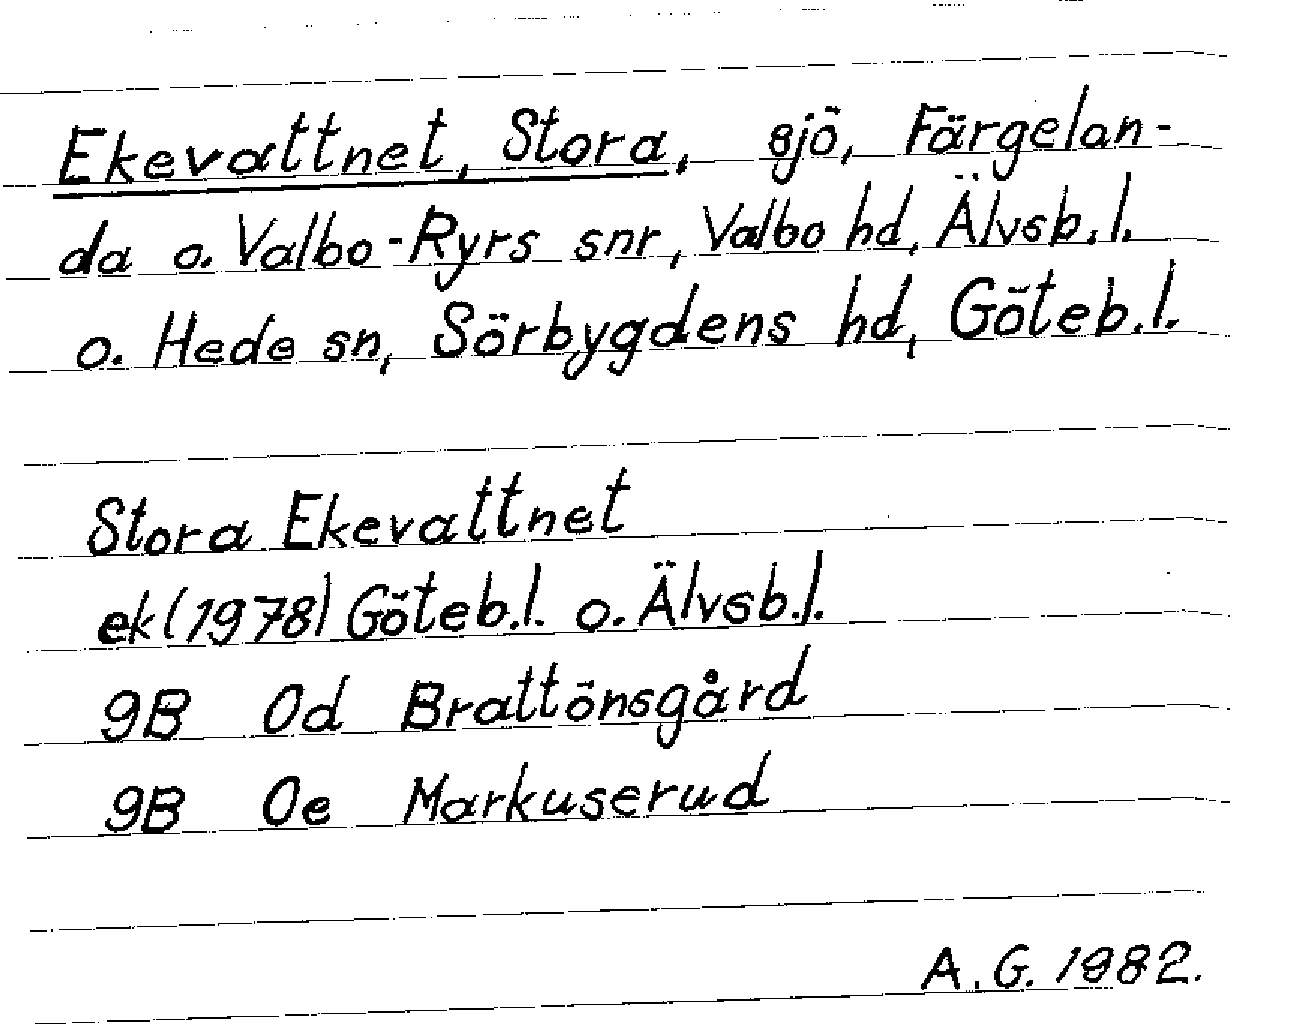 Ekevattnet, Stora, sjö, Färgelan-
da o. Valbo-Ryrs snr, Valbo hd, Älvsb.l.
o. Hede sn, Sörbygdens hd, Göteb.l.
Stora Ekevattnet
ek (1978) Göteb.l. o. Älvsb.l.
9B 0d Brattönsgård
9B 0e Markuserud
A.G. 1982.